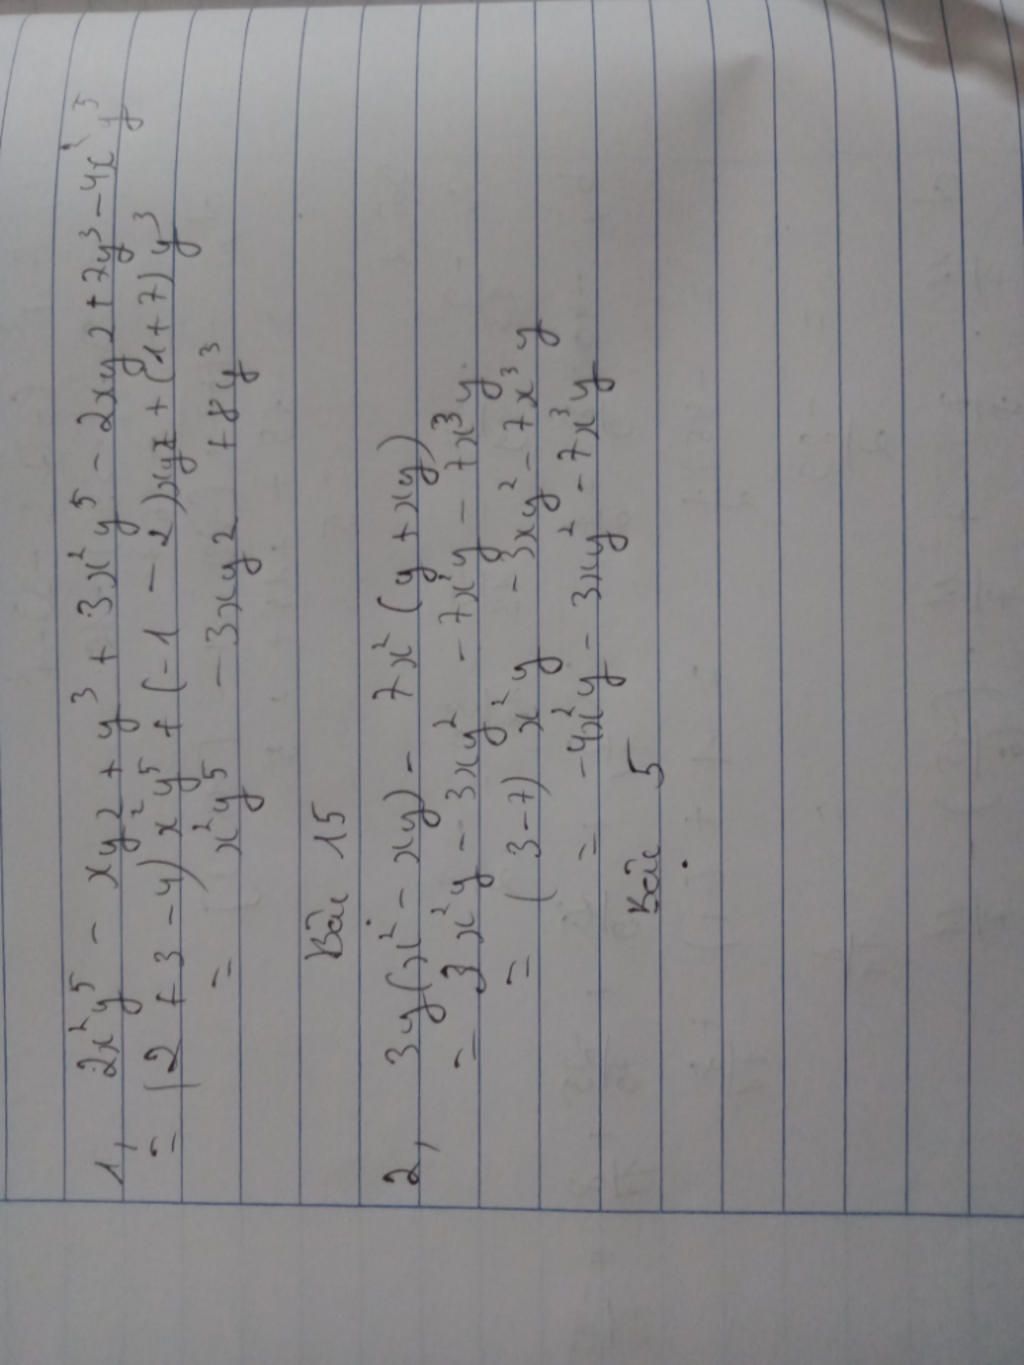 1, 2x²y⁵ - xy2 + y³ + 3x²y⁵ - 2xy2 + 7y³ - 4x²y⁵
= (2 + 3 - 4) x²y⁵ + (-1 - 2)xy2 + (1 + 7) y³
= x²y⁵ - 3xy2 + 8y³
Bài 15
2, 3y(x² - xy) - 7x² (y + xy)
= 3x²y - 3xy² - 7x²y - 7x³y
= (3 - 7) x²y - 3xy² - 7x³y
= -4x²y - 3xy² - 7x³y
Bài 5